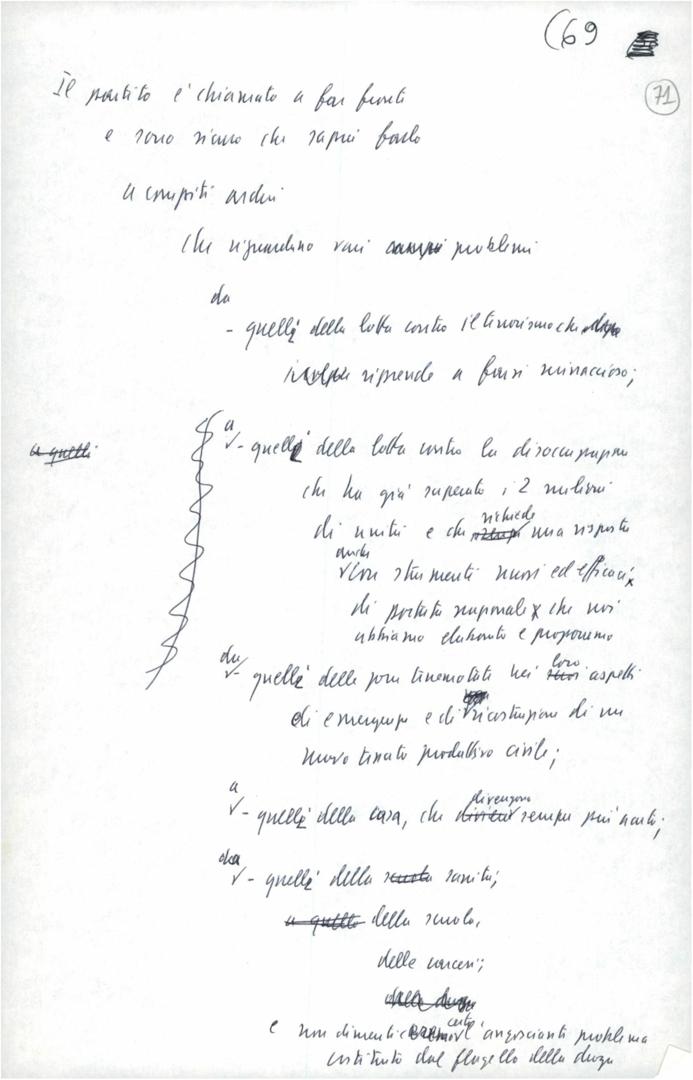 (69
71
Il partito è chiamato a far fronte
e sono sicuro che saprà farlo
a compiti ardui
che riguardano vari problemi
da
- quelli della lotta contro il terrorismo che
riprende a farsi minaccioso;
a quelli
a
- quelli della lotta contro la disoccupazione
che ha già superato i 2 milioni
richiede
di unità e che una risposta
anche
con strumenti nuovi ed efficaci
di portata nazionale che noi
abbiamo elaborato e proponiamo
da
loro
- quelli delle zone terremotate nei suoi aspetti
di emergenza e di ricostruzione di un
nuovo tessuto produttivo civile;
a
divengono
- quelli della casa, che sempre più acuti;
da
- quelli della scuola sanità;
a quello della scuola,
delle carceri;
della droga
certo
e non l'angosciante problema
costituito dal flagello della droga